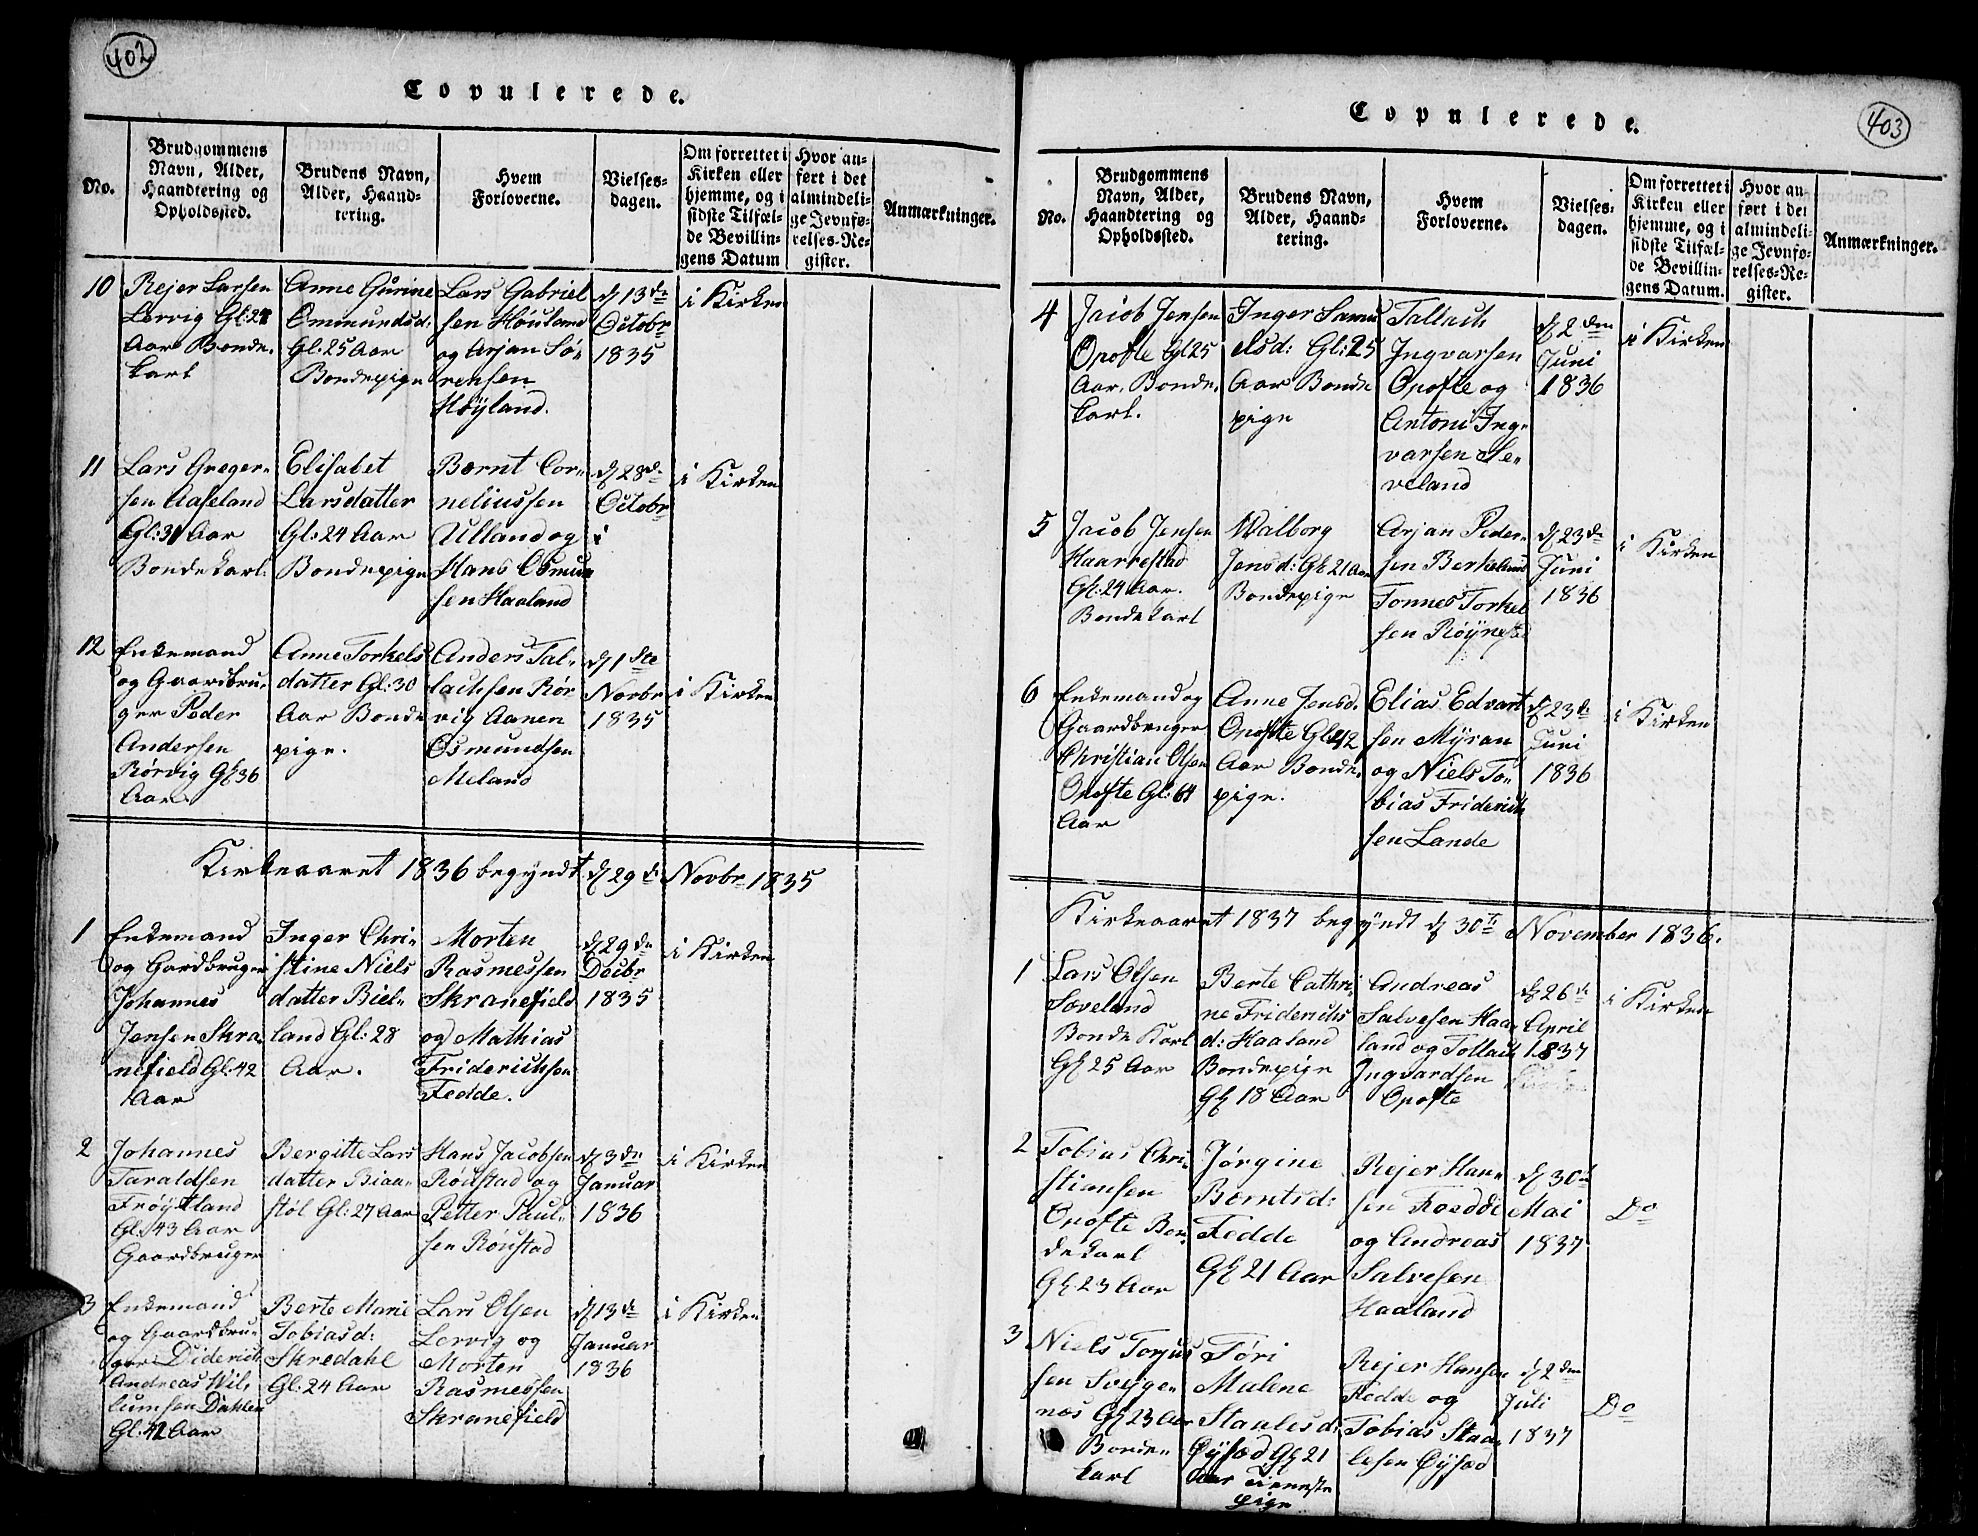 402
Copulerede.
No.
Brudgommens
Navn, Alder,
Haandtering og
Opholdssted.
Brudens Navn,
Alder, Haand-
tering.
Hvem
Forloverne.
Vielses-
dagen.
Om forrettet i
Kirken eller
hjemme, og i
sidste Tilfæl-
de Bevillin-
gens Datum
Hvor an-
ført i det
almindeli-
ge Jevnfø-
relses-Re-
gister.
Anmærkninger.
10
Rejer Larsen
Lervig Gl: 24
Aar Bonde-
karl
Anne Gurine
Ommundsd:
Gl: 25 Aar
Bondepige
Lars Gabriel
sen Houland
og Arjan Sø-
rensen
Høyland.
d 13de
Octobr
1835
i Kirken
11
Lars Greger-
sen Aaseland
Gl: 31 Aar
Bondekarl.
Elisabet
Larsdatter
Gl: 24 Aar
Bondepige
Bernt Cor-
neliussen
Ulland og
Hans Osmun
sen Haaland
d 28de
Octobr
i Kirken
12
Enkemand
og Gaardbru-
ger Peder
Andersen
Rørvig Gl 36
Aar
Anne Torkels
datter Gl: 30
Aar Bonde
pige.
Anders Tal-
lachsen Rør
vig Aanen
Osmundsen
Meland
d 1ste
Novbr
1835
i Kirken
Kirkeaaret 1836 begyndt d 29de Novbr 1835
1
Enkemand
og Gardbruger
Johannes
Jensen Skra-
nefield Gl: 42
Aar
Inger Chri-
stine Niels
datter Biel-
land Gl: 28
Aar.
Morten
Rasmessen
Skranefield
og Mathias
Friderichsen
Fedde.
d 29de
Decbr
1835
i Kirken
2
Johannes
Taraldsen
Frøytland
Gl: 43 Aar
Gaardbruger
Bergitte Lars
datter Biaa-
støl Gl: 27 Aar
Hans Jacobsen
Røustad og
Petter Paul-
sen Røustad
d 3de
Januar
1836
i Kirken
3
Enkemand
og Gaardbru-
ger Diderich
Andreas Wil-
lumsen Dahlen
Gl: 42 Aar
Berte Marie
Tobiasd:
Skredahl
Gl: 24 Aar
Lars Olsen
Lervig og
Morten
Rasmessen
Skranefield
d 13de
Januar
1836
i Kirken
403
Copulerede.
No.
Brudgommens
Navn, Alder,
Haandtering og
Opholdssted.
Brudens Navn,
Alder, Haand-
tering.
Hvem
Forloverne.
Vielses-
dagen.
Om forrettet i
Kirken eller
hjemme, og i
sidste Tilfæl-
de Bevillin-
gens Datum.
Hvor an-
ført i det
almindeli-
ge Jevnfø-
relses-Re-
gister.
Anmærkninger.
4
Jacob Jensen
Opofte Gl 25
Aar. Bonde-
karl.
Inger Samu
elsd: Gl: 25
Aar Bonde
pige
Tallach
Ingvarsen
Opofte og
Antoni Ing-
varsen Se-
veland
d 2den
Juni
1836
i Kirken
5
Jacob Jensen
Haarrestad
Gl: 24 Aar.
Bondekarl
Walborg
Jensd: Gl 21 Aar
Bondepige
Arjan Peder-
sen Berkeland
Tonnes Torkel
sen Røyneste
d 23de
Juni
1836
i Kirken
6
Enkemand og
Gaardbruger
Christian Olsen
Opofte Gl: 64
Aar
Anne Jensd.
Opofte Gl 42
Aar Bonde-
pige.
Elias Edvart
sen Myran
og Niels To-
bias Friderich
sen Lande
d 23de
Juni
1836
i Kirken
Kirkeaaret 1837 begyndt d 30te November 1836.
1
Lars Olsen
Soveland
Bonde Karl
Gl 25 Aar
Berte Cathri-
ne Friderichs
d: Haaland
Bondepige
Gl 18 Aar
Andreas
Salvesen Haa-
land og Tollach
Ingvardsen
Opofte
d 26de
April
1837
i Kirken
2
Tobias Chri-
stiansen
Opofte Bon-
dekarl
Gl 23 Aar
Jørgine
Berntsd:
Fedde
Gl 21 Aar
Rejer Han-
sen Foedde
og Andreas
Salvesen
Haaland
d 30te
Mai
1837
Do
3
Niels Torjus
sen Svejge-
nes Gl 23 Aar
Bonde-
karl
Tøri
Malene
Staalesd:
Øysæd Gl 21
Aar Tieneste
pige
Rejer Hansen
Fedde og
Tobias Staa-
lesen Øysæd
d 2den
Juli
1837
Do